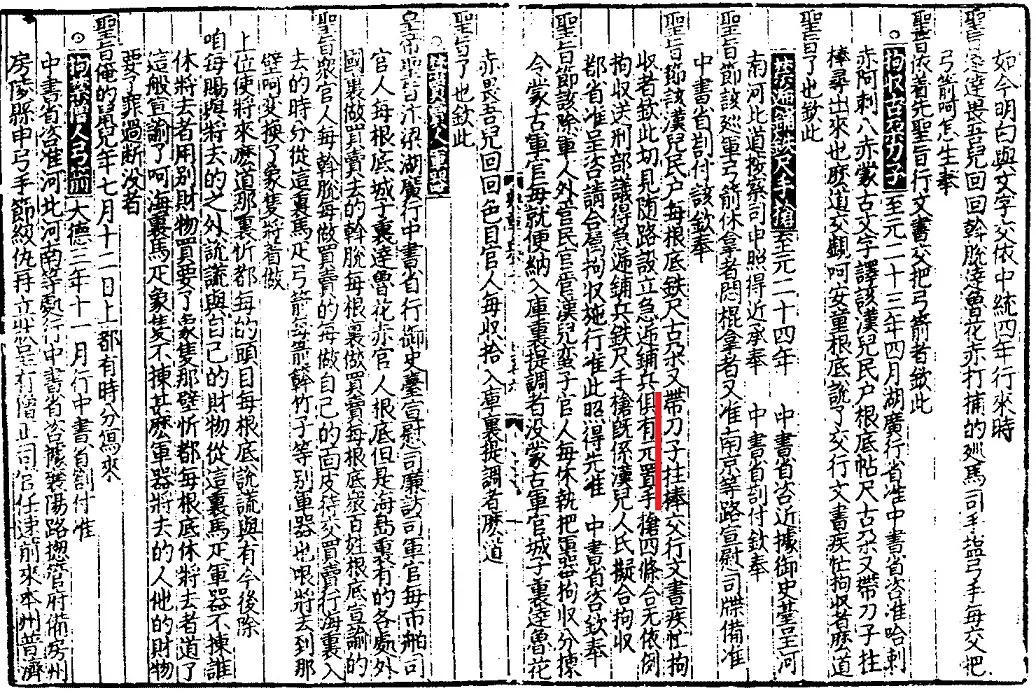 如今明白與文字交依中統四年行來時
聖旨達達畏吾兒回回幹脫達魯花赤打捕的廵馬司手盐弓手每交把
弓箭呵怎生奏
聖旨依着先聖旨行文書交把弓箭者欽此
○拘收古朶刀子 至元二十三年四月湖廣行省准中書省咨准哈剌
赤阿剌八赤蒙古文字譯該漢兒民户根底帖尺古朶又帶刀子拄
棒尋出來也麽道交覷呵安童根底說了交行文書疾忙拘收者麽道
聖旨了也欽此
禁逓鋪鉄尺手槍 至元二十四年 中書省咨近據御史䑓呈河
南河北道按察司申照得近承奉 中書省劄付該欽奉
聖旨節該廵軍弓箭休拿者悶棍拿者又准南京等路宣慰司牒備准
中書省劄付該欽奉
聖旨節該漢兒民户每根底鉄尺古朶又帶刀子拄棒交行文書疾忙拘
收者欽此切見随路設立急逓鋪兵俱有元置手槍四條合无依例
拘収送刑部議得急逓鋪兵鉄尺手槍旣係漢兒人氏擬合拘収
都省准呈咨請合属拘収施行准此照得先准 中書省咨欽奉
聖旨節該除軍人外官民官管漢兒蛮子官人每休執把軍器拘収分揀
今蒙古軍官每就便納入庫裏提調者没蒙古軍官城子裏達魯花
赤畏吾兒回回色目官人每収拾入庫裏提調者麽道
聖旨了也欽此
○禁賣軍器
皇帝聖旨行中書省行御史䑓宣慰司廉訪司軍官每市舶司
官人每根底城子裏達魯花赤官人每根底但是海島裏有的各處外
國裏做買賣去的幹脫每根裏做買賣每根底衆百姓根底宣諭的
聖旨衆官人每幹脫每做買賣的每做自己的面皮待交買賣行海裏入
去的時分從這裏馬疋弓箭环刀箭簳竹子等别軍器也哏將去到那
壁呵交換了象隻将着做
上位使將來麽道那裏忻都每的頭目每根底說謊與有今後除
咱每賜與將去的之外說謊與自己的財物從這裏馬疋軍器不揀誰
休將去者用别財物買要了象隻那壁忻都每根底休將去者道了
這般宣諭了呵海裏馬疋象隻不揀甚麽軍器將去的人他的財物
要了罪過断没者
聖旨俺的鼠兒年七月十二日上都有時分寫來
○拘禁僧人弓箭 大德三年十一月行中書省劄付准
中書省咨准河北河南等處行中書省咨據襄陽路總管府備房州
房陵縣申弓手節級仇再立狀呈有僧正司官任逹前來本州普濟